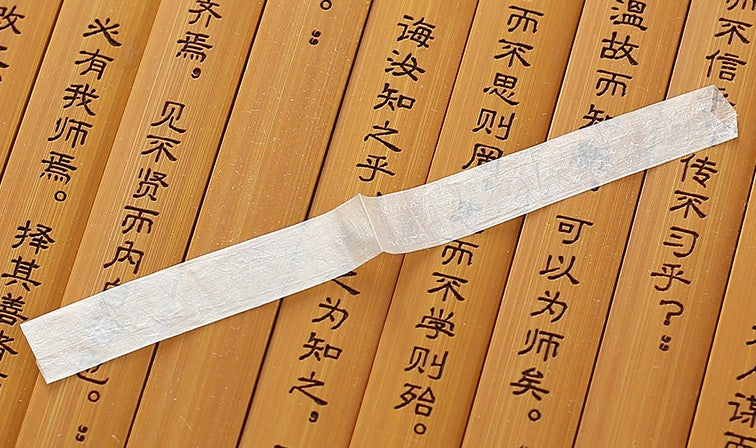 人谋而
不信传不习乎？”
温故而知，可以为师矣。
而不思则罔而不学则殆。
诲汝知之乎之为知之，
。”
齐焉，见不贤而内也。”
必有我师焉。择其善者
改